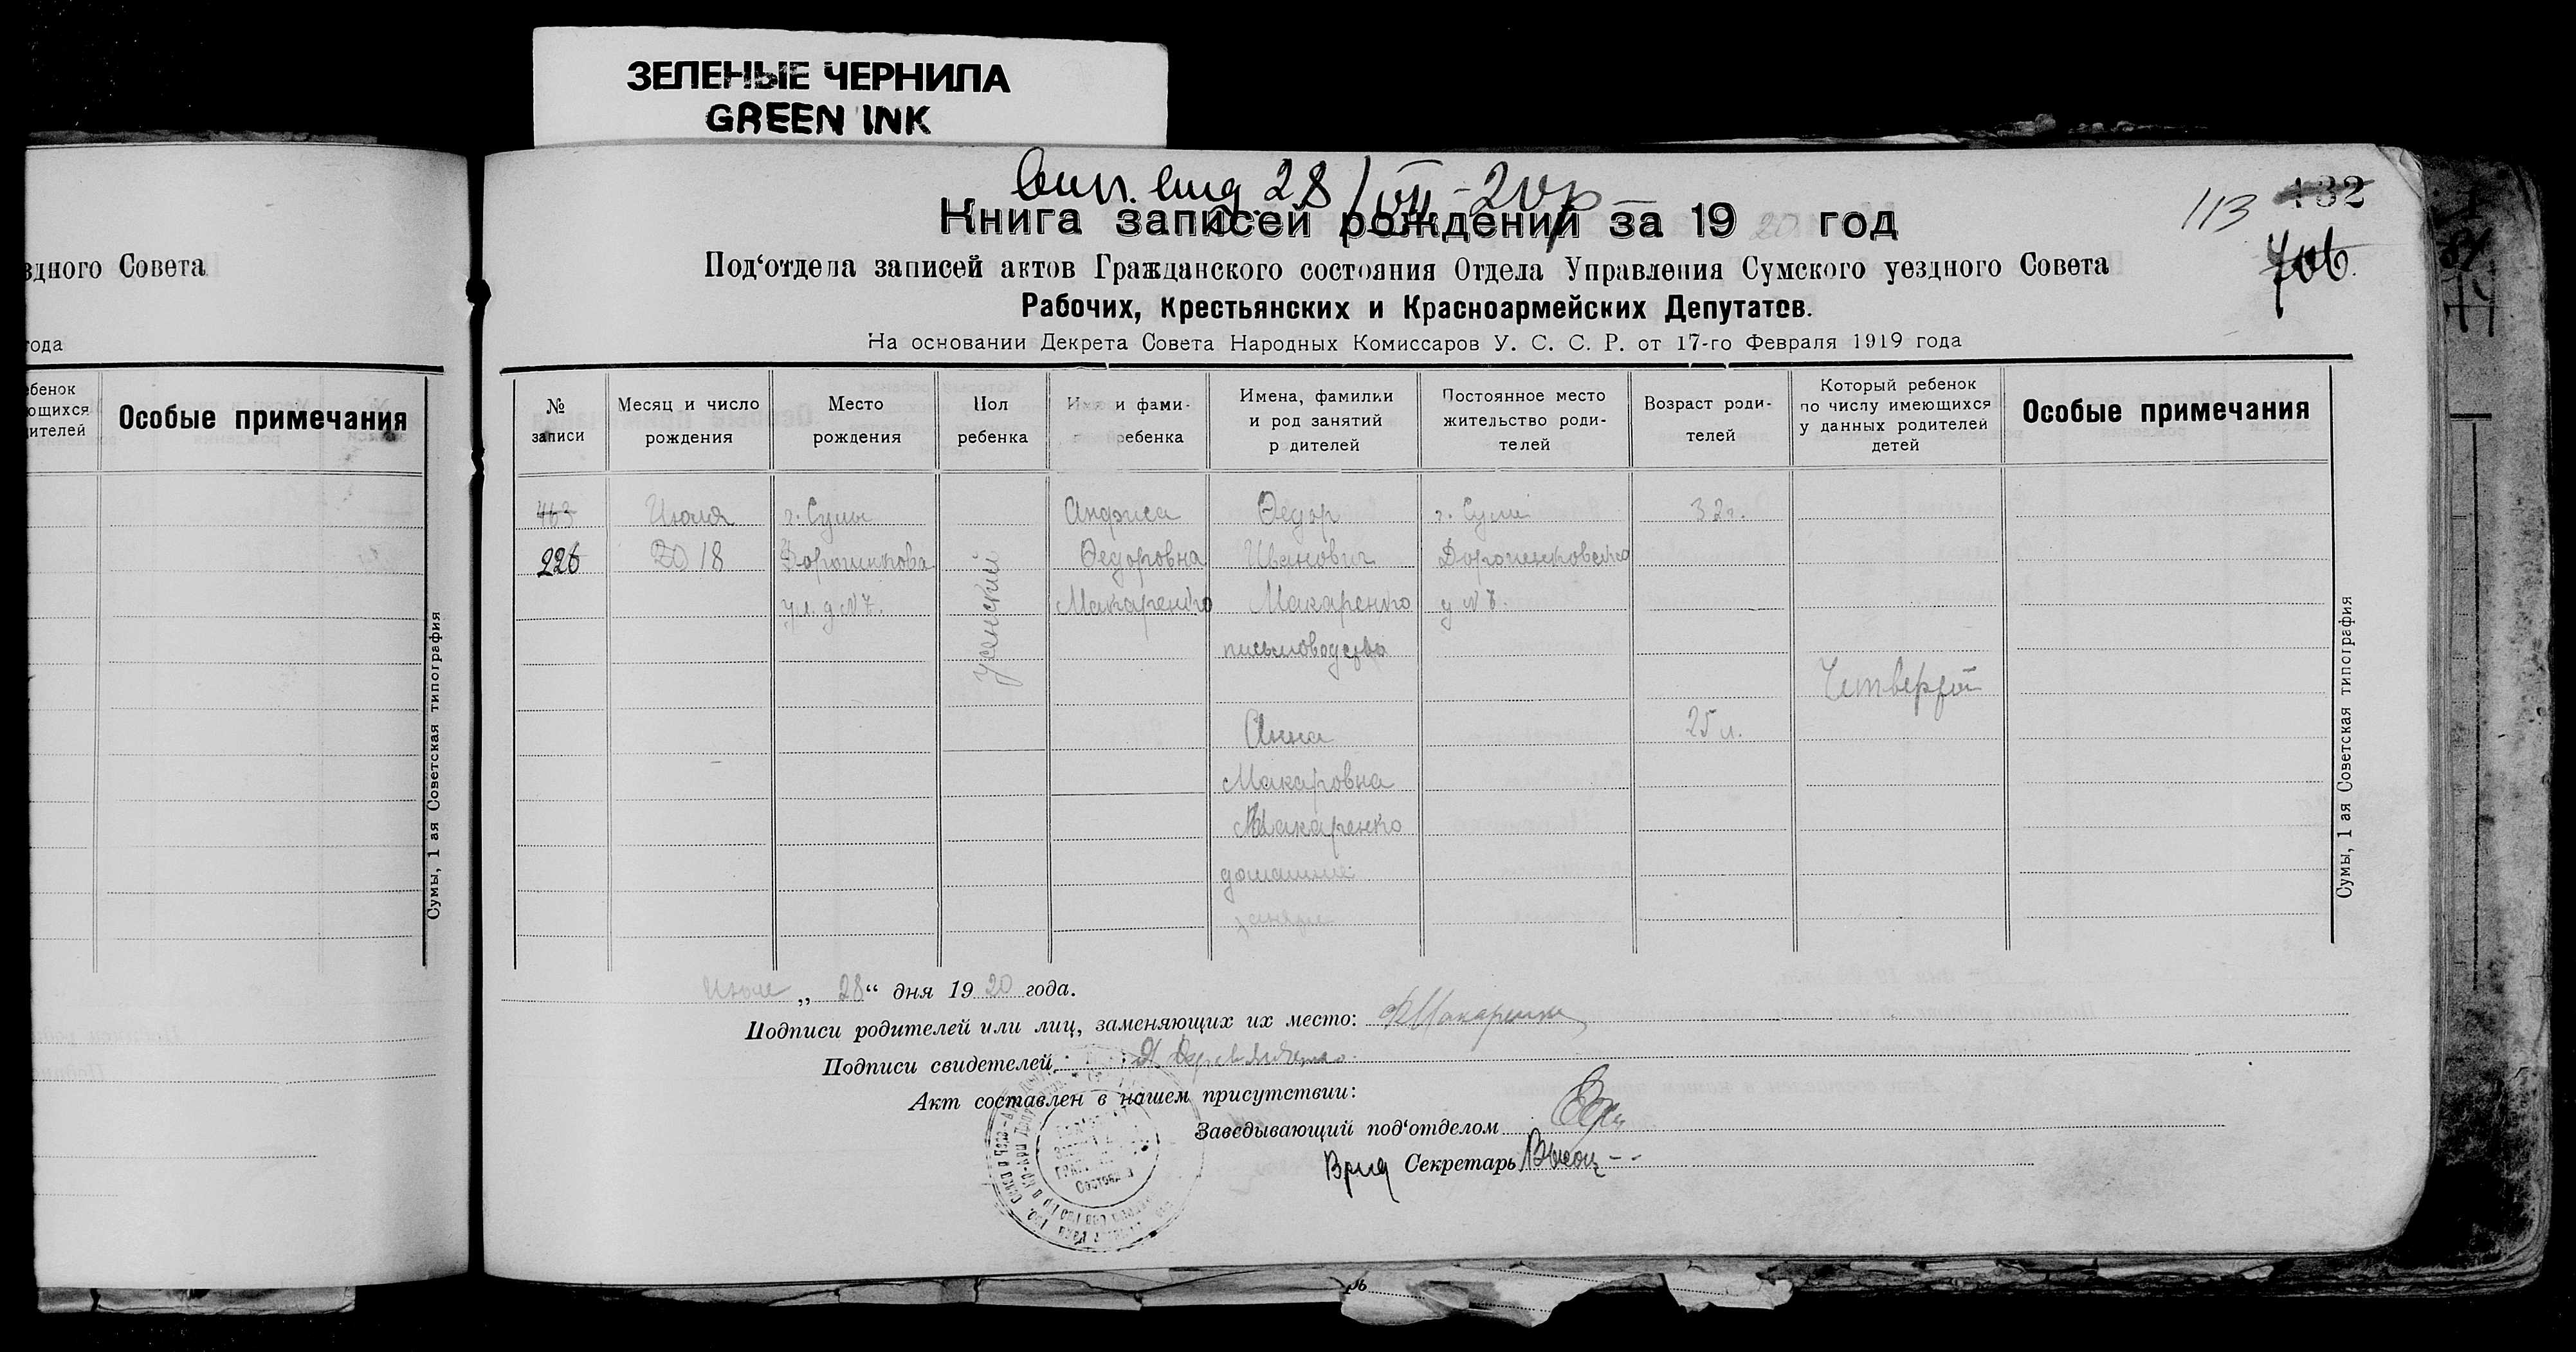 ЗЕЛЕНЫЕ ЧЕРНИЛА
GREEN INK
28/VII-20 р
Книга записей рождений за 1920 год
113 132
706.
Под‘отдела записей актов Гражданского состояния Отдела Управления Сумского уездного Совета
Рабочих, Крестьянских и Красноармейских Депутатов.
На основании Декрета Совета Народных Комиссаров У. С. С. Р. от 17-го Февраля 1919 года
здного Совета
года
ебенок
ющихся
ителей
Особые примечания
Сумы, 1 ая Советская типография
№ записи
Месяц и число рождения
Место рождения
Пол ребенка
Имя и фами- ребенка
Имена, фамилии и род занятий р дителей
Постоянное место жительство роди- телей
Возраст роди- телей
Который ребенок по числу имеющихся у данных родителей детей
Особые примечания
463
226
Июля
20 18
г. Сумы
ул. д №7.
женский
Анфиса
Федоровна
Макаренко
Федор
Иванович
Макаренко
письмоводство
Анна
Макаровна
Макаренко
домашние
г. Сумы
32 г.
25 л.
Четвертой
Сумы, 1 ая Советская типография
Июля „28“ дня 1920 года.
Подписи родителей или лиц, заменяющих их место: Ф Макаренко
Подписи свидетелей:
Акт составлен в нашем присутствии:
Заведывающий под‘отделом
Врид Секретарь